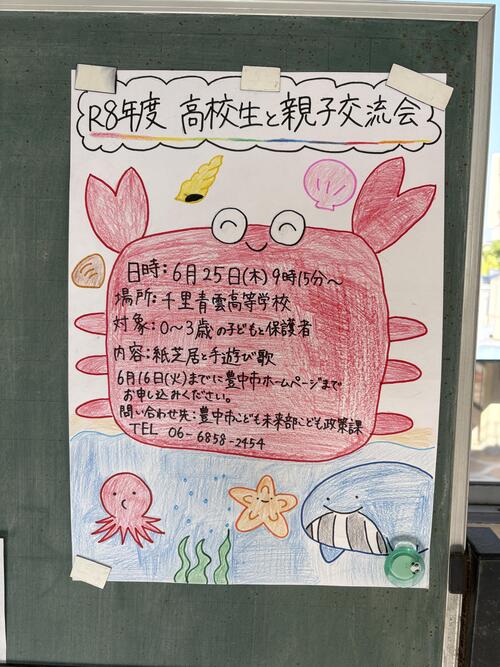 R8年度 高校生と親子交流会
日時：6月25日(木)9時15分～
場所：千里青雲高等学校
対象：0～3歳の子どもと保護者
内容：紙芝居と手遊び歌
6月16日(火)までに豊中市ホームページまで
お申し込みください。
問い合わせ先：豊中市こども未来部こども政策課
TEL 06-6858-2454